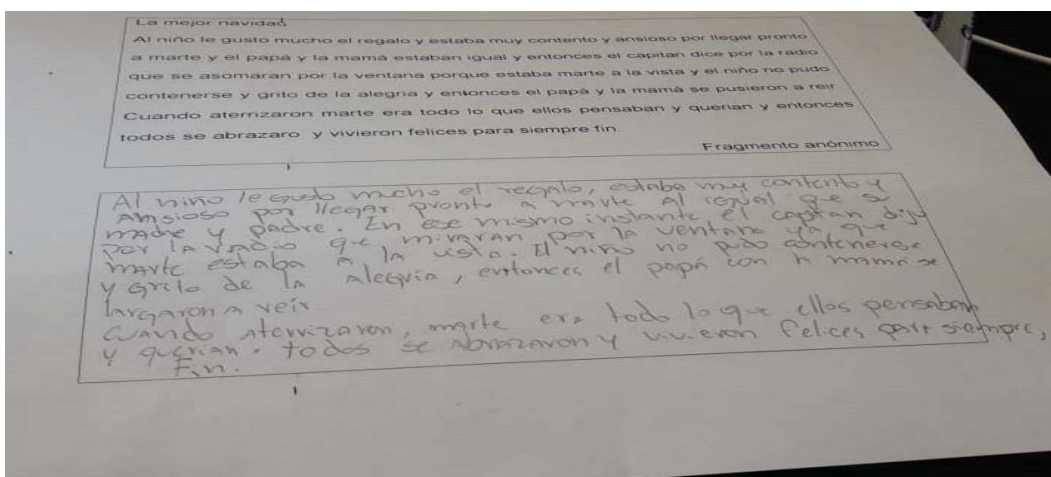 La mejor navidad
Al niño le gusto mucho el regalo y estaba muy contento y ansioso por llegar pronto
a marte y el papá y la mamá estaban igual y entonces el capitan dice por la radio
que se asomaran por la ventana porque estaba marte a la vista y el niño no pudo
contenerse y grito de la alegria y entonces el papá y la mamá se pusieron a reir
Cuando aterrizaron marte era todo lo que ellos pensaban y querian y entonces
todos se abrazaro y vivieron felices para siempre fin.
Fragmento anónimo
Al niño le gusto mucho el regalo, estaba muy contento y
Ansioso por llegar pronto a marte Al igual que su
madre y padre. En ese mismo instante, el capitan dijo
por la radio que miraran por la ventana ya que
marte estaba a la vista. El niño no pudo contenerse
y grito de la Alegria, entonces el papá con la mamá se
largaron a reir.
Cuando Aterrizaron, marte era todo lo que ellos pensaban
y querian. todos se Abrazaron y vivieron felices para siempre,
Fin.